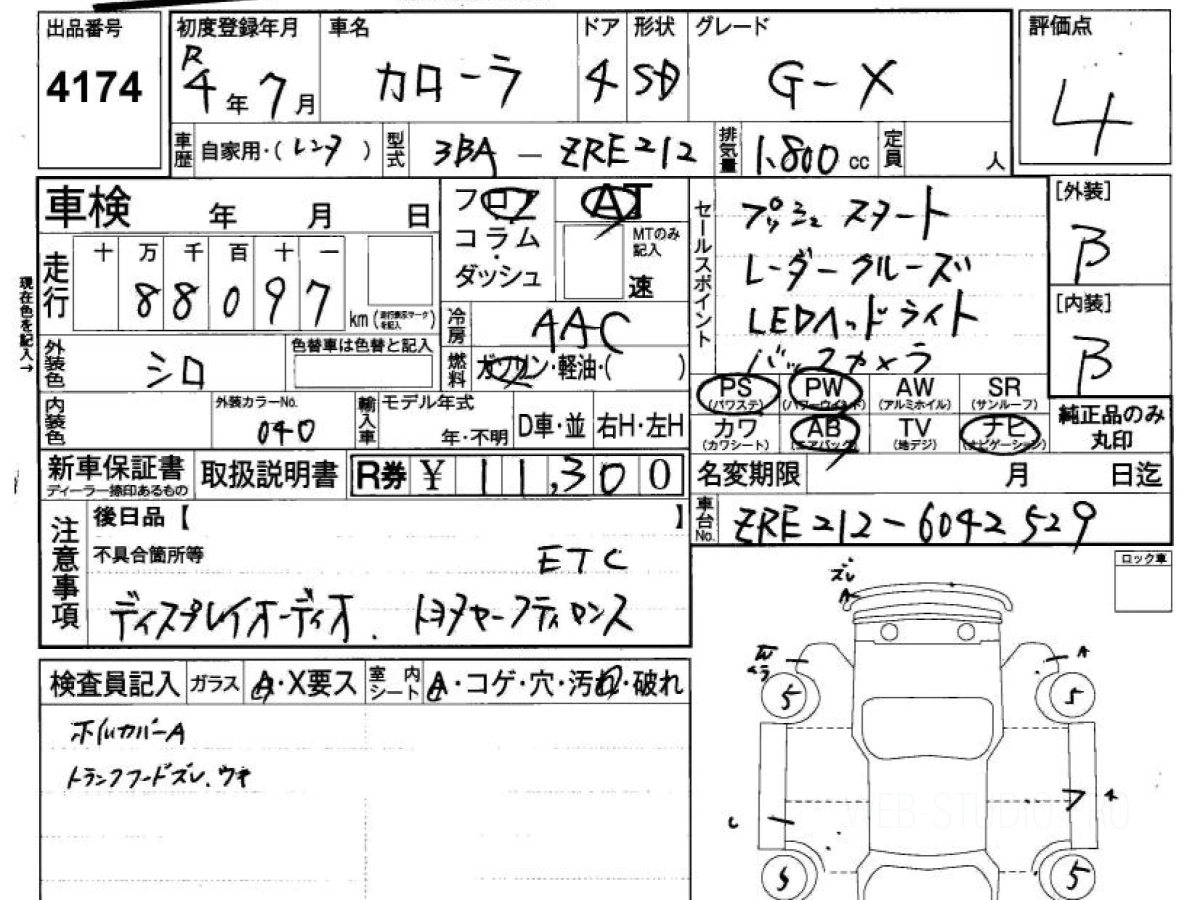 出品番号 初度登録年月 車名 ドア 形状 グレード 評価点
4174 R4年7月 カローラ 4 SD G-X 4
車歴 自家用・(レンタ) 型式 3BA-ZRE212 排気量 1.800cc 定員 人
車検 年 月 日
フロア AT
コラム・ MTのみ記入
ダッシュ 速
セールスポイント
プッシュスタート
レーダークルーズ
LEDヘッドライト
バックカメラ
[外装]
B
[内装]
B
現在色を記入→
走行 十 万 千 百 十 一
88097 km (走行表示マークを記入)
冷房 AAC
外装色 シロ 色替車は色替と記入
燃料 ガソリン・軽油・( )
PS (パワステ) PW (パワーウインド) AW (アルミホイル) SR (サンルーフ)
カワ (カワシート) AB (エアバック) TV (地デジ) ナビ (ナビゲーション)
純正品のみ丸印
内装色 外装カラーNo. 040 輸入車 モデル年式 年・不明 D車・並 右H・左H
新車保証書 ディーラー捺印あるもの 取扱説明書 R券 ¥ 11,300
名変期限 月 日迄
車台No. ZRE212-6042529
注意事項
後日品【 】
不具合箇所等 ETC
ディスプレイオーディオ. トヨタセーフティセンス
ロック車
ズレ
A
検査員記入 ガラス A・X要ス 室内シート A・コゲ・穴・汚れ・破れ
ホイルカバーA
トランクフードズレ.ウキ
A
5 5
WEB-STUDIO.PRO
5 5